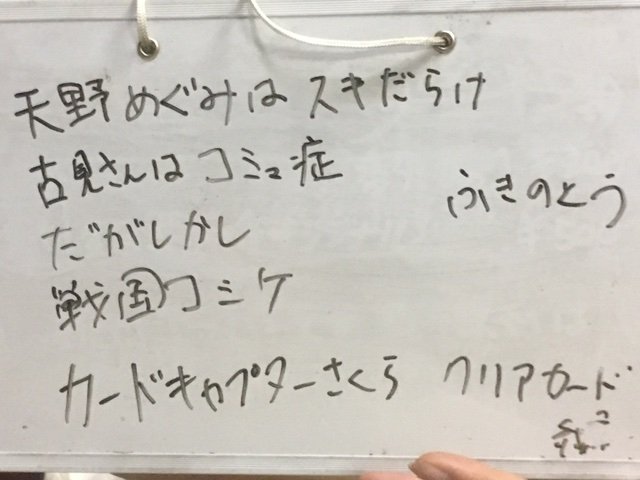 天野めぐみは スキだらけ
古見さんは コミュ症
ふきのとう
だがしかし
戦国コミケ
カードキャプターさくら クリアカード